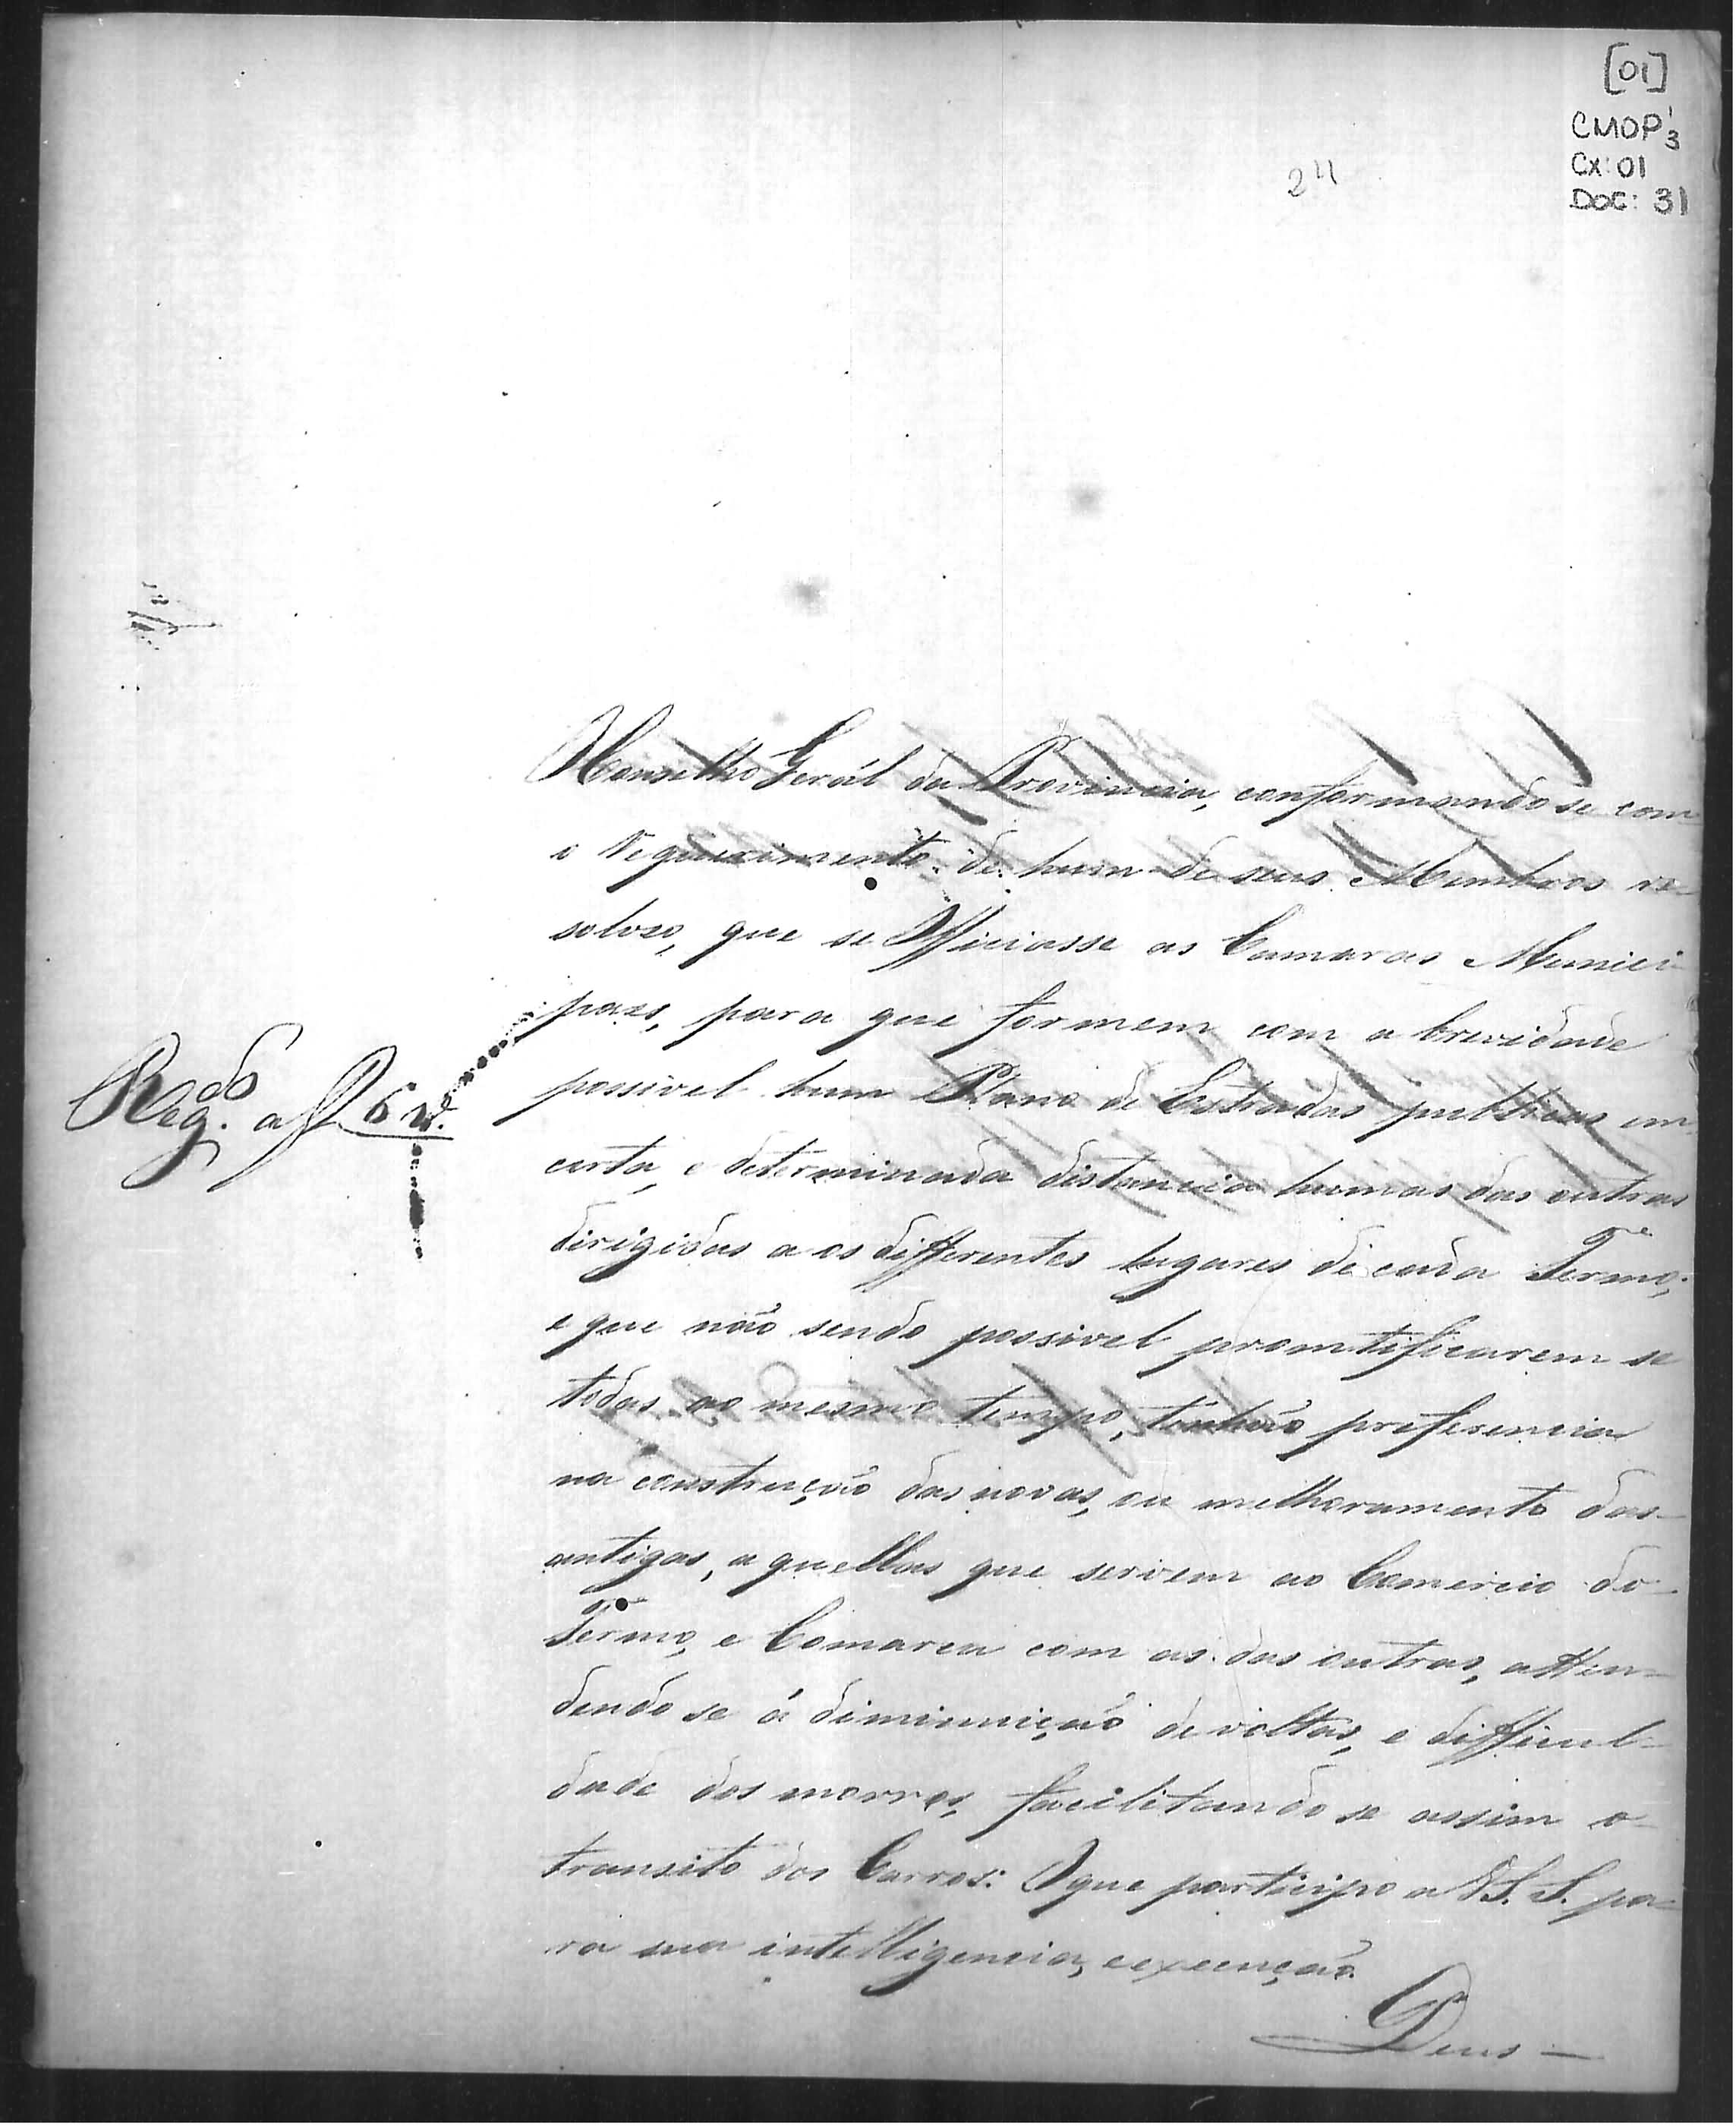 [01]
CMOP 3
Cx: 01
DOC: 31
24
O Conselho Gerál da Provincia, conformando se com
o Requerimento de hum de seus Membros re-
solveo, que se Officiasse as Camaras Munici-
paes, para que formem com a brevidade
possivel hum Plano de Estradas publicas em
certa, e determinada distancia humas das outras
dirigidas a os differentes lugares de cada Termo;
e que não sendo possivel promtificarem se
todas ao mesmo tempo, tenhão preferencia
na construcção das novas, ou melhoramento das
antigas, aquellas que servem ao Comercio do
Termo, e Comarca com as das outras, atten-
dendo se á diminuição de voltas, e difficul-
dade dos morros, facilitando se assim o
transito dos Carros: O que participo a VS. S. pa-
ra sua intelligencia, e execução.
Deus
Reg.do a f 6 v.